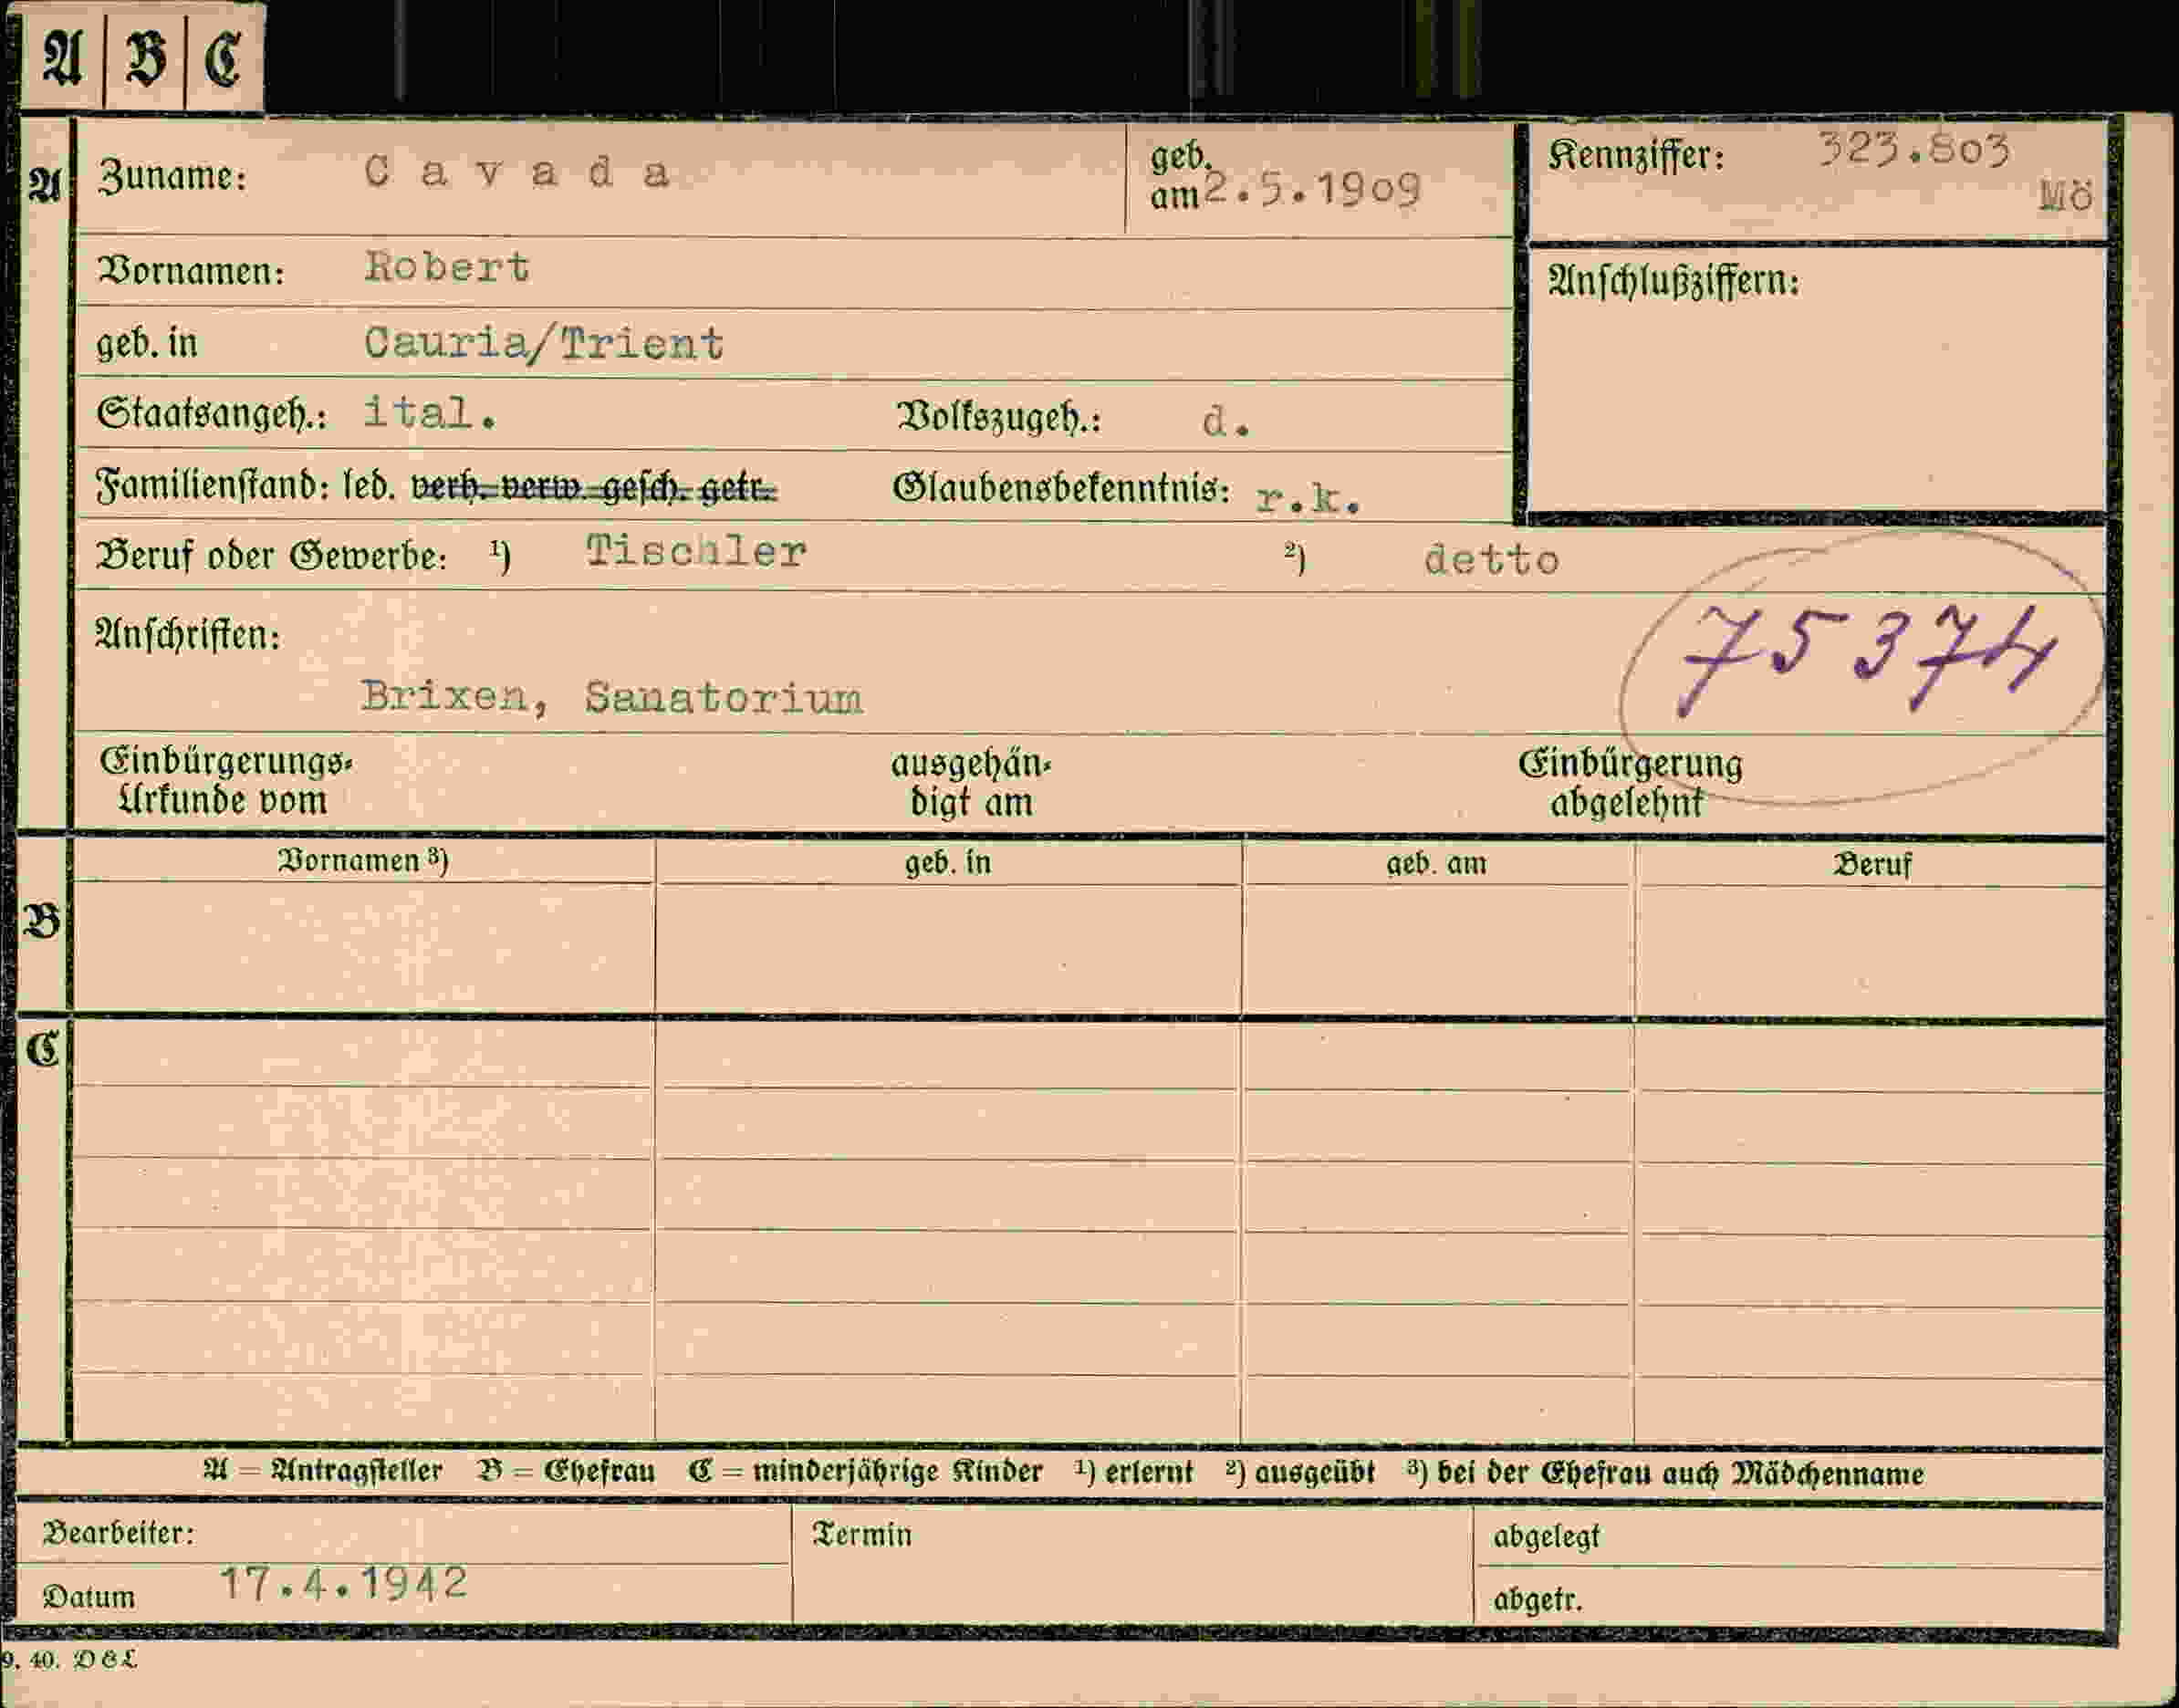 A B C
A Zuname: Cavada geb. am 2.5.1909 Kennziffer: 323.803
Mö
Vornamen: Robert Anschlußziffern:
geb. in Cauria/Trient
Staatsangeh.: ital. Volkszugeh.: d.
Familienstand: led. verh. verw. gesch. getr. Glaubensbekenntnis: r.k.
Beruf oder Gewerbe: ¹) Tischler ²) detto
Anschriften: 75374
Brixen, Sanatorium
Einbürgerungs- ausgehän- Einbürgerung
Urkunde vom digt am abgelehnt
Vornamen ³) geb. in geb. am Beruf
B
C
A = Antragsteller B = Ehefrau C = minderjährige Kinder ¹) erlernt ²) ausgeübt ³) bei der Ehefrau auch Mädchenname
Bearbeiter: Termin abgelegt
Datum 17.4.1942 abgetr.
9. 40. DEL